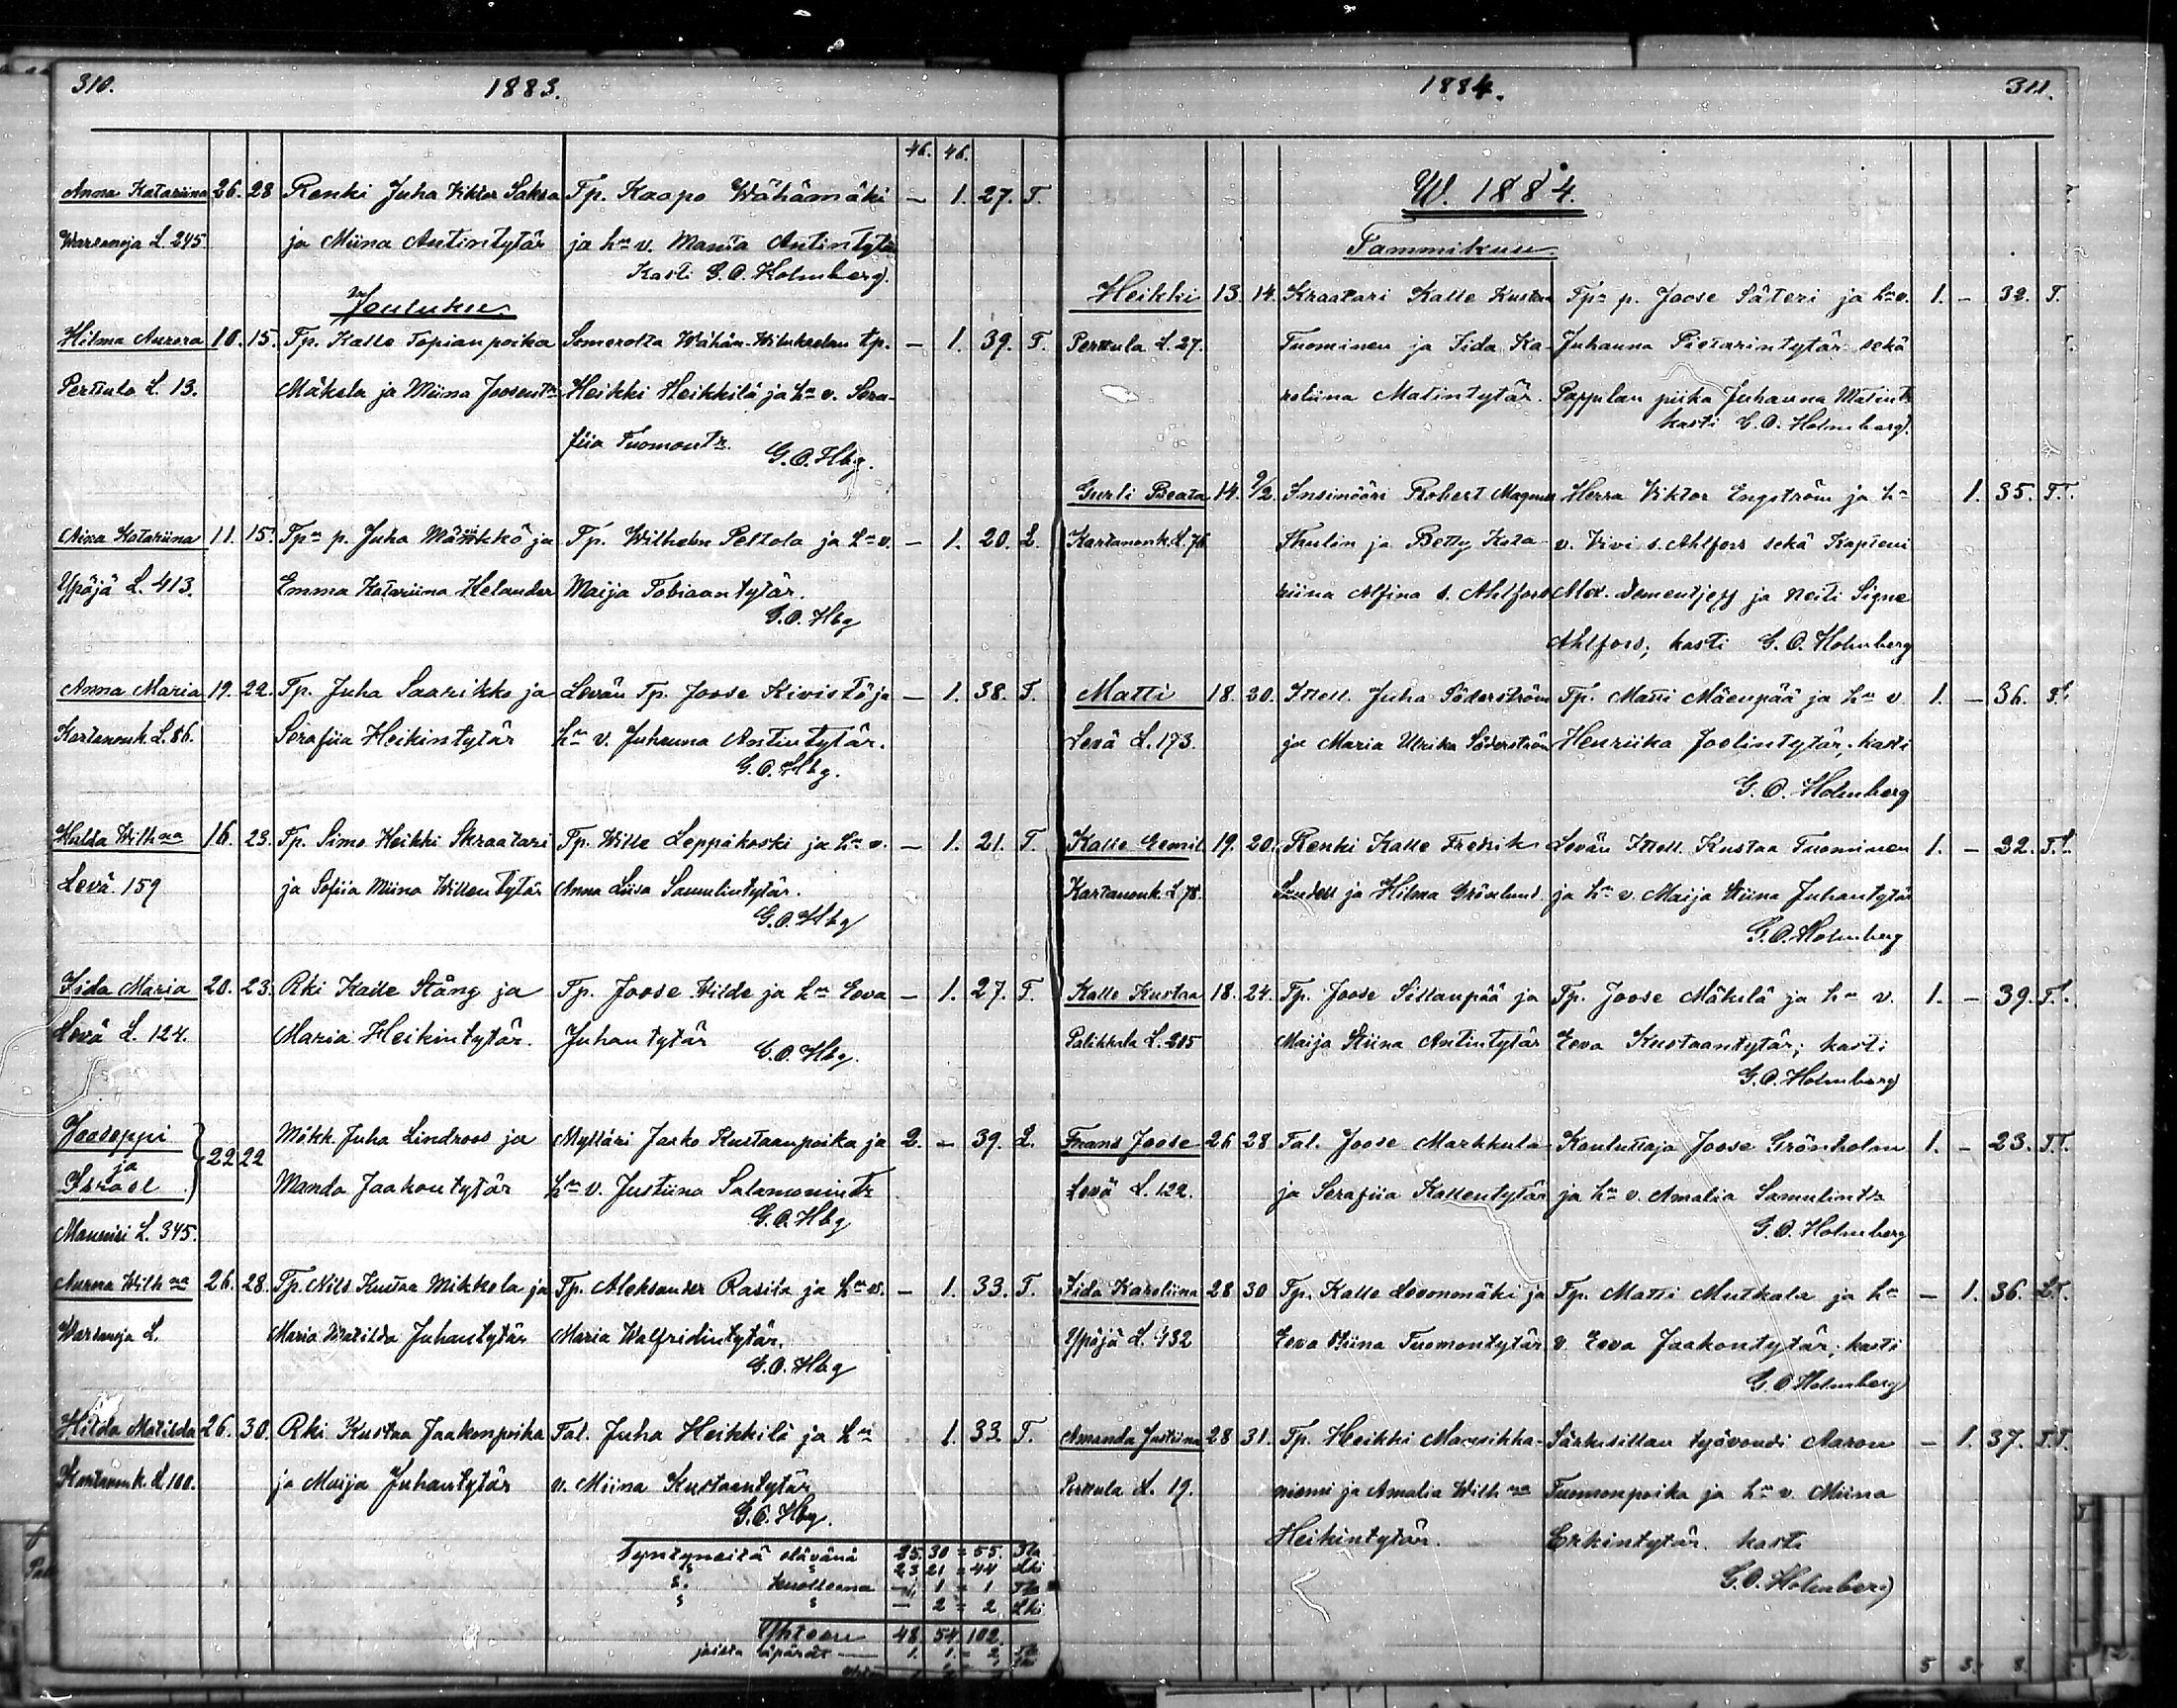 310.
1883.
46. 46.
Anna Katariina 26. 28 Renki Juha Viktor Saksa Tp. Kaapo Wähämäki — 1. 27. T.
L. 245 ja Miina Antintytär ja hn v. Manta Antintytär
Kasti G. O. Holmberg.
Joulukuu.
Hilma Aurora 10. 15. Tp. Kalle Topianpoika Somerolta Wähän- tp. — 1. 39. T.
Perttula L. 13. Mäkela ja Miina Joosentr Heikki Heikkilä ja hn v. Sera-
fiia Tuomontr.
G. O. Hbg.
Aina Katariina 11. 15. Tpn p. Juha ja Tp. Wilhelm Peltola ja hn v. — 1. 20. L.
Ypäjä L. 413. Emma Katariina Helander Maija Tobiaantytär.
G. O. Hbg
Anna Maria 19. 22. Tp. Juha Saarikko ja Levän Tp. Joose Kivistö ja — 1. 38. T.
Kartanonk. L. 86. Serafiia Heikintytär hn v. Juhanna Antintytär.
G. O. Hbg.
Hulda Wilhna 16. 23. Tp. Simo Heikki Skraatari Tp. Wille Leppäkoski ja hn v. — 1. 21. T.
Levä 159 ja Sofiia Miina Willentytär Anna Liisa Samulintytär.
G. O. Hbg
Iida Maria 20. 23. Rki Kalle Stång ja Tp. Joose Wilde ja hn Eeva — 1. 27. T.
Levä L. 124. Maria Heikintytär. Juhantytär
G. O. Hbg.
Jooseppi
ja
Israel
22 22 Mökk. Juha Lindroos ja Mylläri Jaska Kustaanpoika ja 2. — 39. L.
Manda Jaakontytär hn v. Justiina Salamonintr
G. O. Hbg
L. 345.
Aurora Wilhna 26. 28. Tp. Nils Kustaa Mikkola ja Tp. Aleksander Rasila ja hn v. — 1. 33. T.
L. Maria Matilda Juhantytär Maria Walfridintytär.
G. O. Hbg
Hilda Matilda 26. 30. Rki Kustaa Jaakonpoika Tal. Juha Heikkilä ja hn 1. 33. T.
Kartanonk. L. 100. ja Maija Juhantytär v. Miina Kustaantytär
G. O. Hbg.
Syntyneitä elävänä 25. 30 = 55. Tla
23 21 = 44 Lki
kuolleena — 1 = 1 Tla
— 2 = 2 Lki
Yhteen 48. 54 102.
joista äpäriä — 1. 1. = 2
1884.
311.
W. 1884.
Tammikuu.
Heikki 13. 14. Kraatari Kalle Kustaa Tpn p. Joose Säteri ja hn v. 1. — 32. T.
Perttula L. 27. Tuominen ja Iida Ka- Juhanna Pietarintytär sekä
roliina Matintytär. Pappilan piika Juhanna Matintr
kasti G. O. Holmberg.
Gurli Beata 14. 9/2. Insinööri Robert Magnus Herra Viktor Engström ja hn 1. 35. T.T.
Kartanonk. L. 76 Thulin ja Betty Kata- v. Vivi s. Ahlfors sekä Kapteni
riina Alfina s. Ahlfors Alex. Dementjeff ja neiti Signe
Ahlfors; kasti G. O. Holmberg
Matti 18. 20. Itsell. Juha Söderström Tp. Matti Mäenpää ja hn v. 1. — 36. T.L.
Levä L. 173. ja Maria Ulrika Söderström Henriika Joelintytär, kasti
G. O. Holmberg
Kalle Eemil 19. 20. Renki Kalle Fredrik Levän Itsell. Kustaa Tuominen 1. — 22. T.L.
Kartanonk. L. 78. Lindell ja Hilma Grönlund. ja hn v. Maija Stiina Juhantytär
G. O. Holmberg
Kalle Kustaa 18. 24. Tp. Joose Sillanpää ja Tp. Joose Mäkilä ja hn v. 1. — 39. T.L.
Palikkala L. 205 Maija Stiina Antintytär Eeva Kustaantytär; kasti
G. O. Holmberg
Frans Joose 26 28 Tal. Joose Markkula Kouluttaja Joose Grönholm 1. — 23. T.T.
Levä L. 122. ja Serafiia Kallentytär ja hn v. Amalia Samulintr
G. O. Holmberg
Iida Karoliina 28 30 Tp. Kalle Levonmäki ja Tp. Matti Mutkala ja hn — 1. 36. L.T.
Ypäjä L. 432 Eeva Stiina Tuomontytär v. Eeva Jaakontytär; kasti
G. O. Holmberg
Amanda Justiina 28 31. Tp. Heikki Mansikka- Särkisillan työvouti Aaron — 1. 37. T.T.
Perttula L. 19. niemi ja Amalia Wilhna Tuomonpoika ja hn v. Miina
Heikintytär. Erkintytär. kasti
G. O. Holmberg
5 3. 8.